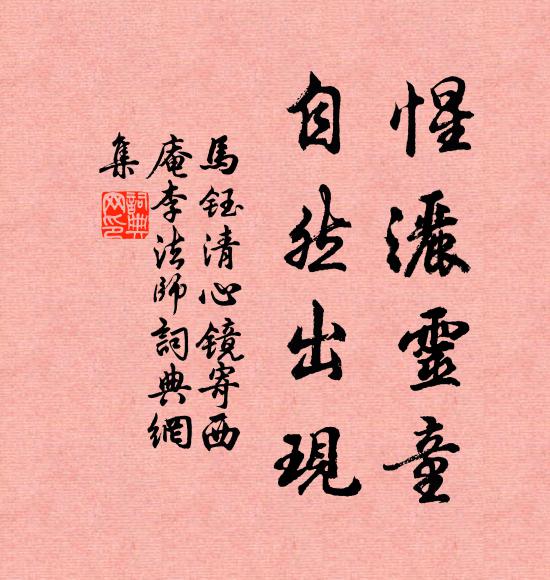 惺灑靈童
自然出現
馬鈺清心镜寄西
庵李法師詞典網
集
詞典网印